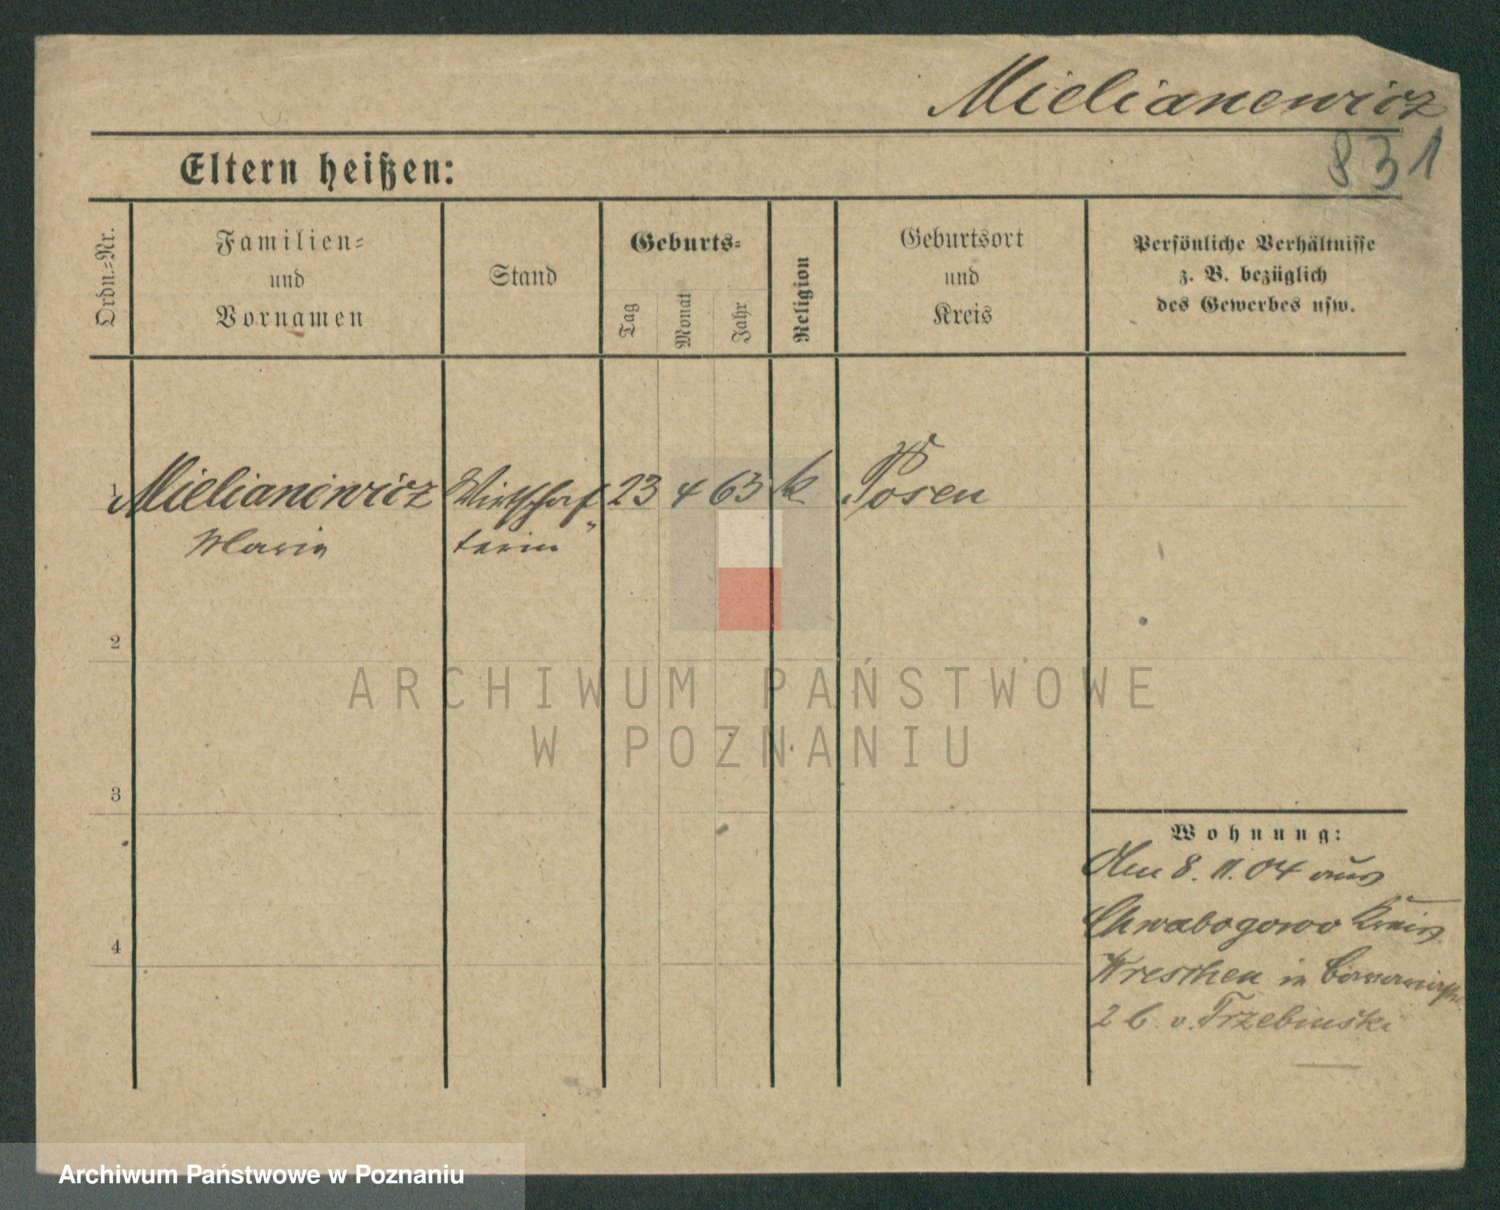 Mielianewicz
831
Eltern heißen:
Ordn.-Nr.
Familien-
und
Vornamen
Stand
Geburts-
Tag
Monat
Jahr
Religion
Geburtsort
und
Kreis
Persönliche Verhältnisse
z. B. bezüglich
des Gewerbes usw.
1 Mielianewicz Wirthschaf 23 4 63 k Posen
Maria terin
2
ARCHIWUM PAŃSTWOWE
W POZNANIU
3
Wohnung:
Den 8. 11. 04 aus
Chwabogowo Kreis
4
Wreschen in
2 b. v. Trzebinski
Archiwum Państwowe w Poznaniu